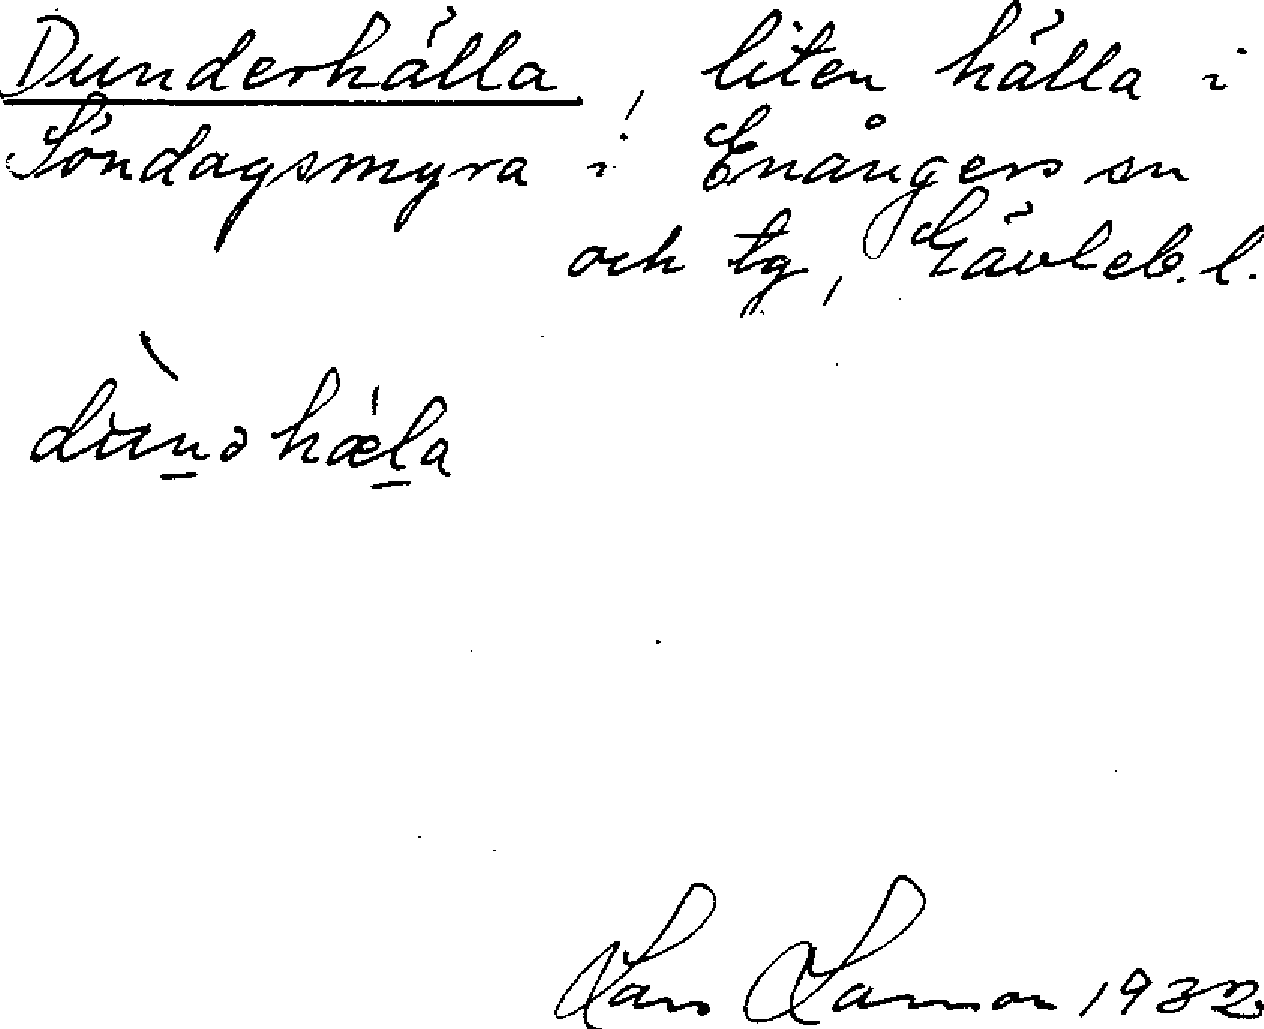 Dunderhälla, liten hälla i
Söndagsmyra i Enångers sn
och tg, Gävleb. l.
dùn̠ə hæ̍l̠a
Lars Larsson 1932